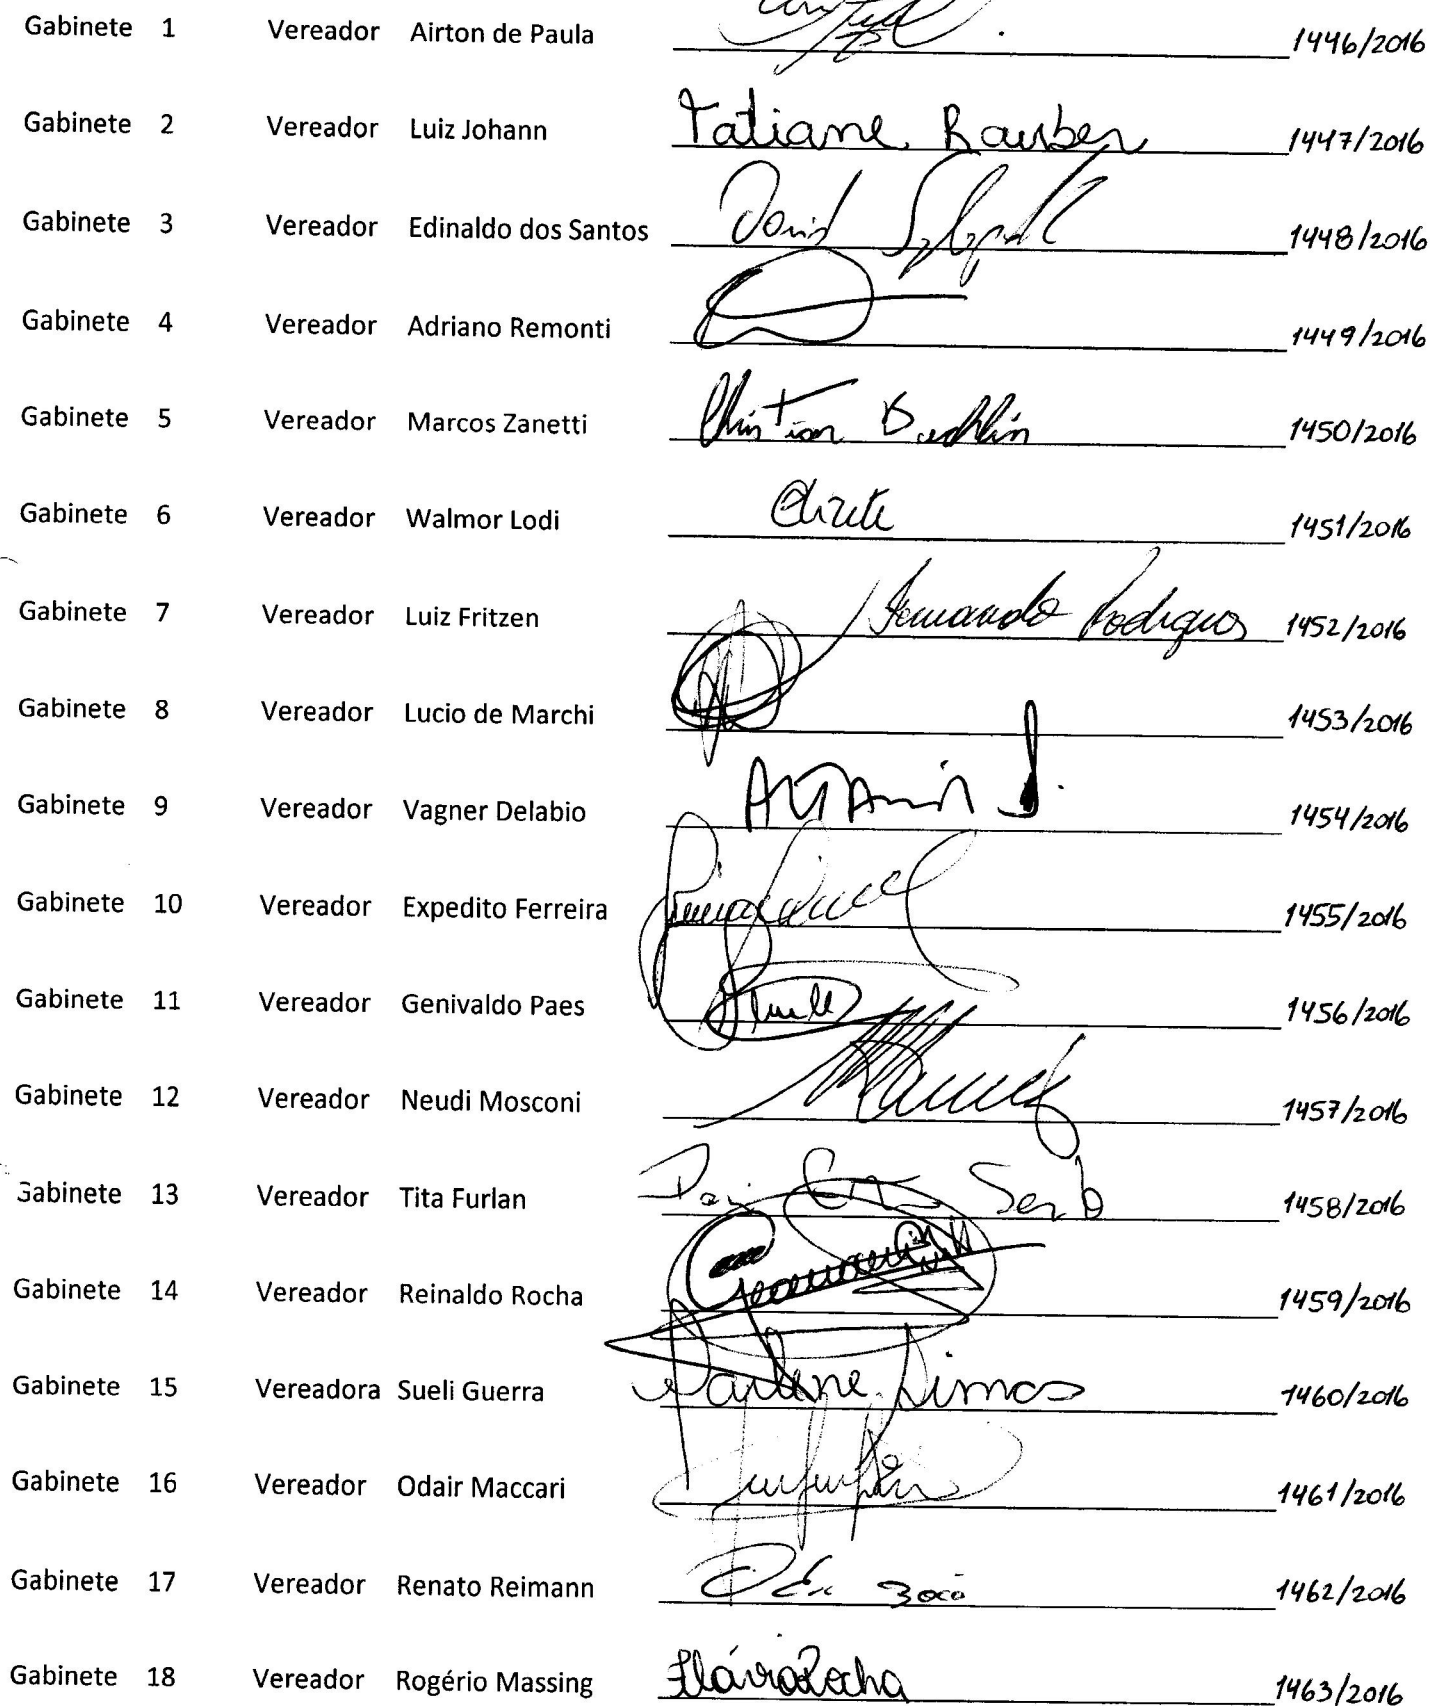 Gabinete 1 Vereador Airton de Paula 1446/2016
Gabinete 2 Vereador Luiz Johann Tatiane Rauber 1447/2016
Gabinete 3 Vereador Edinaldo dos Santos David 1448/2016
Gabinete 4 Vereador Adriano Remonti 1449/2016
Gabinete 5 Vereador Marcos Zanetti Christian 1450/2016
Gabinete 6 Vereador Walmor Lodi Elizete 1451/2016
Gabinete 7 Vereador Luiz Fritzen Fernando Rodrigues 1452/2016
Gabinete 8 Vereador Lucio de Marchi 1453/2016
Gabinete 9 Vereador Vagner Delabio 1454/2016
Gabinete 10 Vereador Expedito Ferreira 1455/2016
Gabinete 11 Vereador Genivaldo Paes 1456/2016
Gabinete 12 Vereador Neudi Mosconi 1457/2016
Gabinete 13 Vereador Tita Furlan 1458/2016
Gabinete 14 Vereador Reinaldo Rocha 1459/2016
Gabinete 15 Vereadora Sueli Guerra Marlene Simos 1460/2016
Gabinete 16 Vereador Odair Maccari 1461/2016
Gabinete 17 Vereador Renato Reimann 1462/2016
Gabinete 18 Vereador Rogério Massing Flávia Rocha 1463/2016